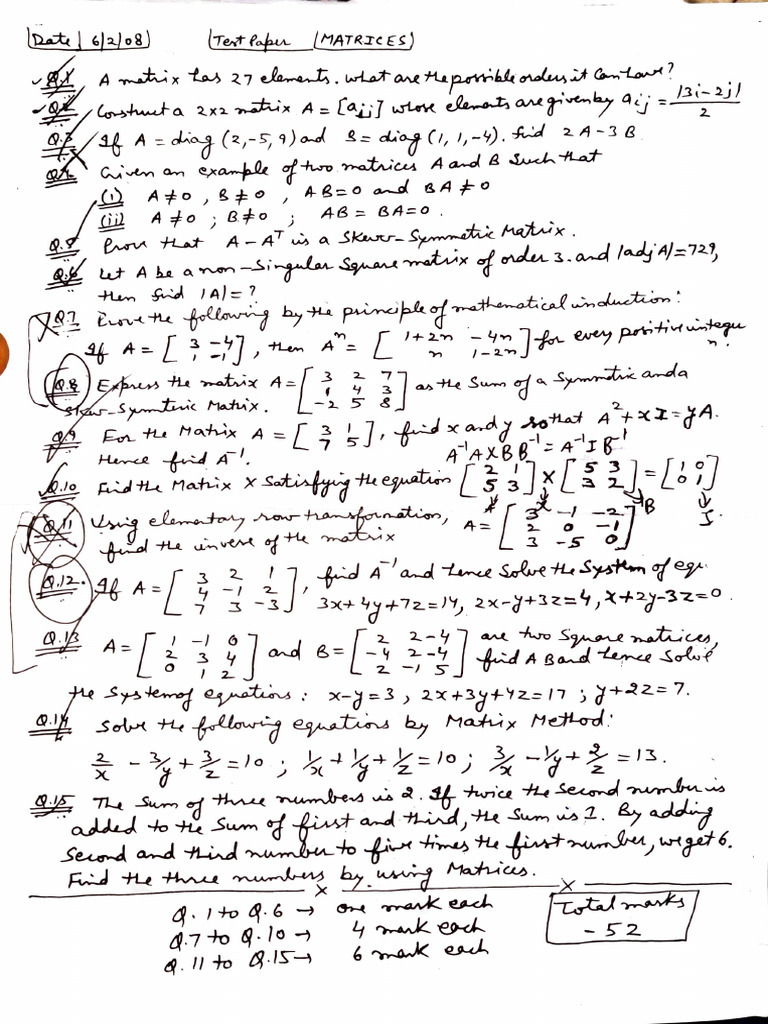 Date 6/2/08 Test Paper MATRICES
Q.1 A matrix has 27 elements. what are the possible orders it can have?
Q.2 Construct a 2x2 matrix A = [aij] whose elements are given by aij = |3i-2j|/2
Q.3 If A = diag (2,-5,9) and B = diag (1,1,-4). find 2A-3B
Q.4 Given an example of two matrices A and B such that
(i) A≠0, B≠0, AB=0 and BA≠0
(ii) A≠0; B≠0; AB = BA=0.
Q.5 Prove that A-A^T is a Skew-Symmetric Matrix.
Q.6 Let A be a non-Singular Square matrix of order 3. and |adjA|=729,
then find |A|=?
Q.7 Prove the following by the principle of mathematical induction:
If A = [3 -4; 1 -1], then A^n = [1+2n -4n; n 1-2n] for every positive integer n.
Q.8 Express the matrix A = [3 2 7; 1 4 3; -2 5 8] as the Sum of a Symmetric and a
Skew-Symmteric Matrix.
Q.9 For the Matrix A = [3 1; 7 5], find x and y so that A^2+xI=yA.
Hence find A^-1. A^-1AXBB^-1 = A^-1IB^-1
Q.10 Find the Matrix X Satisfying the equation [2 1; 5 3] X [5 3; 3 2] = [1 0; 0 1]
A X B I
Q.11 Using elementary row transformation, A = [3 -1 -2; 2 0 -1; 3 -5 0]
find the inverse of the matrix
Q.12. If A = [3 2 1; 4 -1 2; 7 3 -3], find A^-1 and hence Solve the System of eq.
3x+4y+7z=14, 2x-y+3z=4, x+2y-3z=0.
Q.13 A = [1 -1 0; 2 3 4; 0 1 2] and B = [2 2 -4; -4 2 -4; 2 -1 5] are two Square matrices,
find AB and hence Solve
the System of equations: x-y=3, 2x+3y+4z=17; y+2z=7.
Q.14 Solve the following equations by Matrix Method:
2/x - 3/y + 3/z = 10; 1/x + 1/y + 1/z = 10; 3/x - 1/y + 2/z = 13.
Q.15 The Sum of three numbers is 2. If twice the Second number is
added to the Sum of first and third, the Sum is 1. By adding
Second and third number to five times the first number, we get 6.
Find the three numbers by using Matrices.
Q.1 to Q.6 → one mark each
Q.7 to Q.10 → 4 mark each
Q.11 to Q.15 → 6 mark each
Total marks
- 52